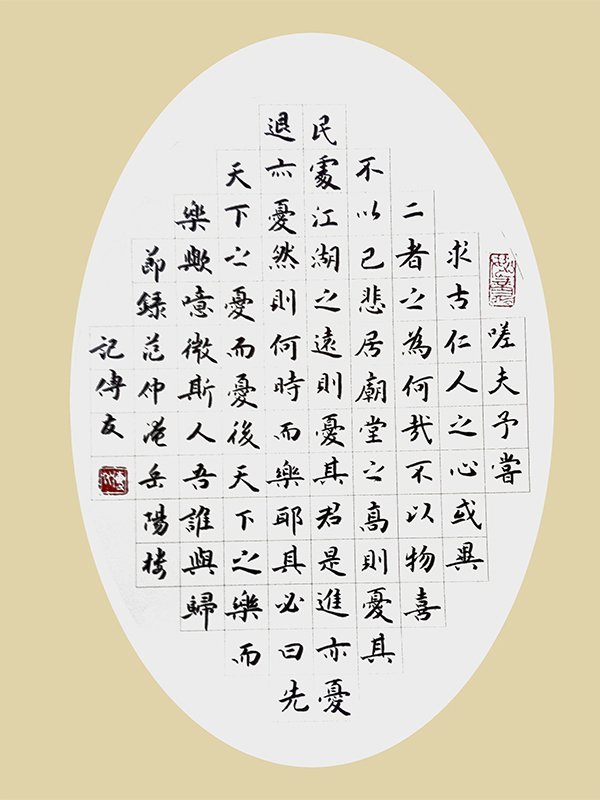 嗟夫予嘗
求古仁人之心或異
二者之為何哉不以物喜
不以己悲居廟堂之高則憂其
民處江湖之遠則憂其君是進亦憂
退亦憂然則何時而樂耶其必曰先
天下之憂而憂後天下之樂而
樂歟噫微斯人吾誰與歸
節録范仲淹岳陽楼
記傅友